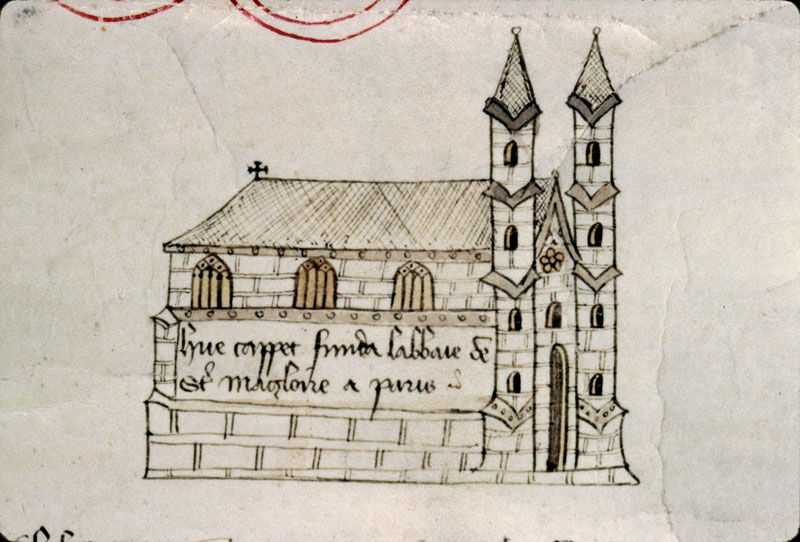 hue cappet funda labbaie de
St magloire a paris